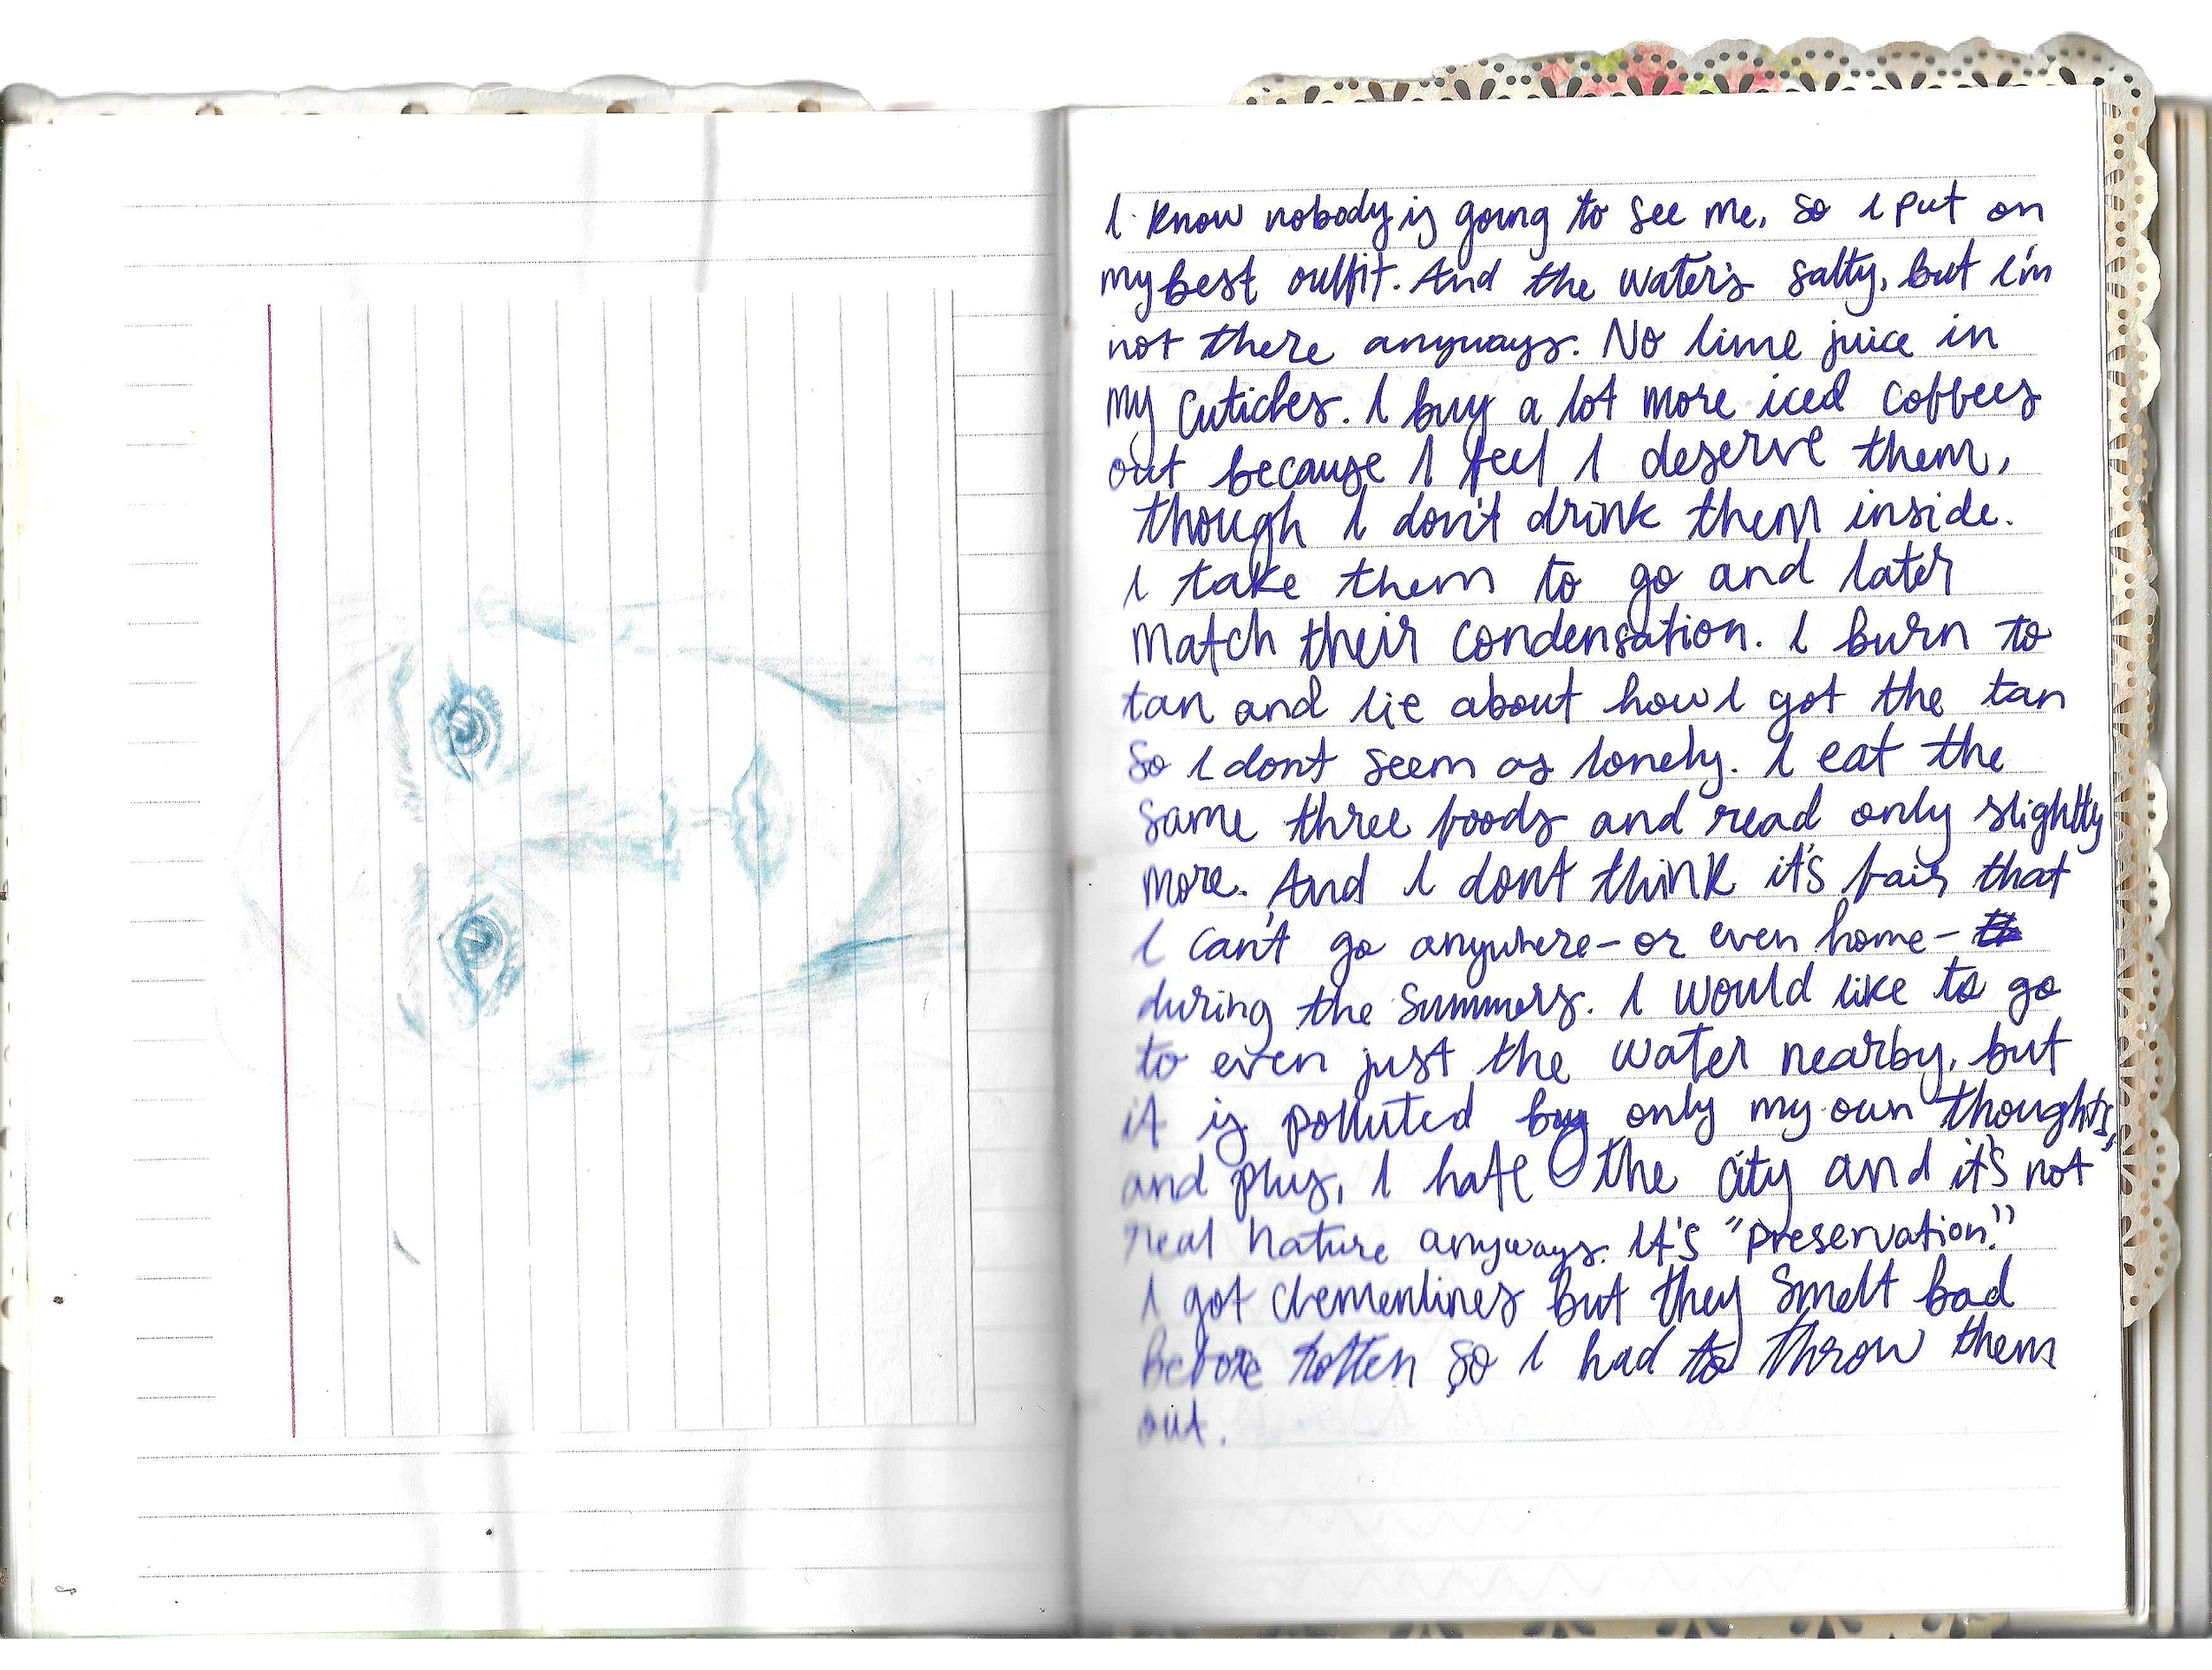 I know nobody is going to see me, so I put on
my best outfit. And the water's salty, but I'm
not there anyways. No lime juice in
my cuticles. I buy a lot more iced coffees
out because I feel I deserve them,
though I don't drink them inside.
I take them to go and later
match their condensation. I burn to
tan and lie about how I got the tan
so I dont seem as lonely. I eat the
same three foods and read only slightly
more. And I dont think it's fair that
I can't go anywhere - or even home -
during the summers. I would like to go
to even just the water nearby, but
it is polluted by only my own thoughts,
and plus, I hate the city and it's not
real nature anyways. It's "preservation."
I got clementines but they smelt bad
before rotten so I had to throw them
out.